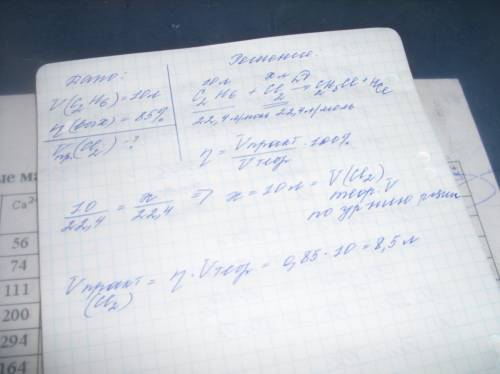 Дано:
V(C2H6)=10л
η(вых)=85%
Vпр.(Cl2)-?
Решение.
10л xл
C2H6 + Cl2 → C2H5Cl + HCl
22,4л/моль 22,4л/моль
η = Vпракт/Vтеор · 100%
10/22,4 = x/22,4 => x = 10л = V(Cl2)
теор. V
по ур-нию
Vпракт = η · Vтеор = 0,85 · 10 = 8,5 л
(Cl2)
ые
Ca2+
56
74
111
200
294
164